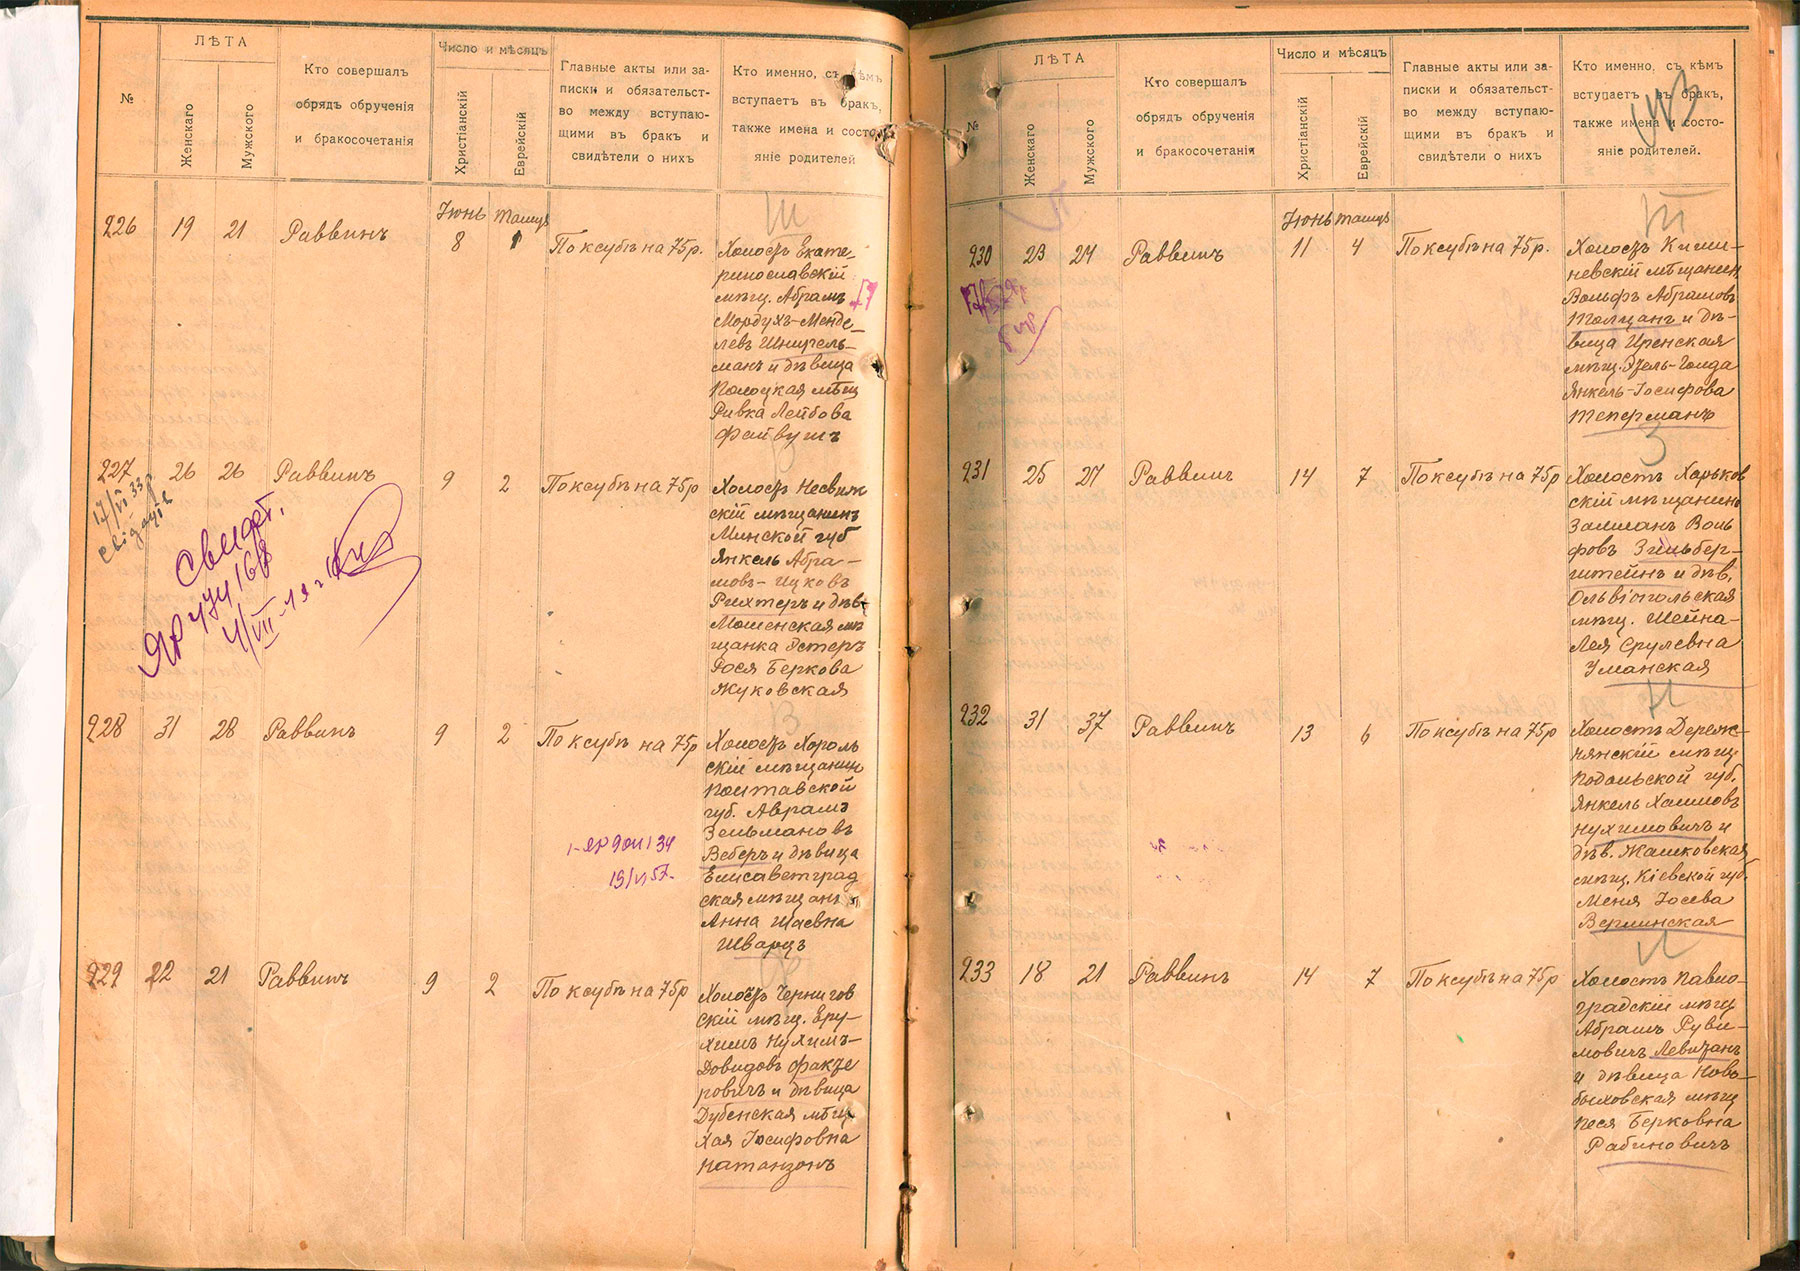 №
ЛѢТА
Женскаго
Мужского
Кто совершалъ
обрядъ обрученія
и бракосочетанія
Число и мѣсяцъ
Христіанскій
Еврейскій
Главные акты или за-
писки и обязательст-
во между вступаю-
щими въ бракъ и
свидѣтели о нихъ
Кто именно, съ кѣмъ
вступаетъ въ бракъ,
также имена и состо-
яніе родителей
Ш
226 19 21 Раввинъ Іюнь 8 Тамуз 1 По ксубѣ на 75 р.
Холостъ Екате-
ринославскій
мѣщ. Абрамъ
Мордухъ-Менде-
левъ Шнирель-
манъ и дѣвица
Полоцкая мѣщ
Ривка Лейбова
Файвушъ
227 26 26 Раввинъ 9 2 По ксубѣ на 75 р
17/VI 33 р.
свидет.
ЯР 474168
4/VII
Холостъ Несвиж
скій мѣщанинъ
Минской губ
Янкель Абра-
мовъ-Ицковъ
Рихтеръ и дѣв.
Мошенская мѣ
щанка Эстеръ
Рося Беркова
Жуковская
228 31 28 Раввинъ 9 2 По ксубѣ на 75 р
Холостъ Хороль
скій мѣщанин
Полтавской
губ. Аврамъ
Зельмановъ
Веберъ и дѣвица
Елисаветград
ская мѣщан
Анна Шаевна
Шварцъ
229 22 21 Раввинъ 9 2 По ксубѣ на 75 р
Холостъ Чернигов
скій мѣщ. Еру-
химъ Нухимъ-
Довидовъ Факто
ровичъ и дѣвица
Дубенская мѣщ.
Хая Іосифовна
Натанзонъ
№
ЛѢТА
Женскаго
Мужского
Кто совершалъ
обрядъ обрученія
и бракосочетанія
Число и мѣсяцъ
Христіанскій
Еврейскій
Главные акты или за-
писки и обязательст-
во между вступаю-
щими въ бракъ и
свидѣтели о нихъ
Кто именно, съ кѣмъ
вступаетъ въ бракъ,
также имена и состо-
яніе родителей.
Ш
230 23 24 Раввинъ Іюнь 11 Тамуз 4 По ксубѣ на 75 р.
Холостъ Киши-
невскій мѣщанин
Вольфъ Абрамовъ
Толцанъ и дѣ-
вица Иренская
мѣщ. Эзель-Голда
Янкель-Іосифова
Теперманъ
З
231 25 27 Раввинъ 14 7 По ксубѣ на 75 р
Холостъ Харьков
скій мѣщанинъ
Залманъ Воль
фовъ Зильбер-
штейнъ и дѣв.
Ольвіопольская
мѣщ. Шейна-
Лея Срулевна
Уманская
Н
232 31 37 Раввинъ 13 6 По ксубѣ на 75 р
Холостъ Дереж-
нянскій мѣщ
Подольской губ.
Янкель Хаимовъ
Нухимовичъ и
дѣв. Жашковская
мѣщ. Кіевской губ.
Меня Іосева
Верлинская
Л
233 18 21 Раввинъ 14 7 По ксубѣ на 75 р
Холостъ Павло-
градскій мѣщ
Абрамъ Руви-
мовичъ Левизанъ
и дѣвица Ново-
быховская мѣщ
Песя Берковна
Рабиновичъ